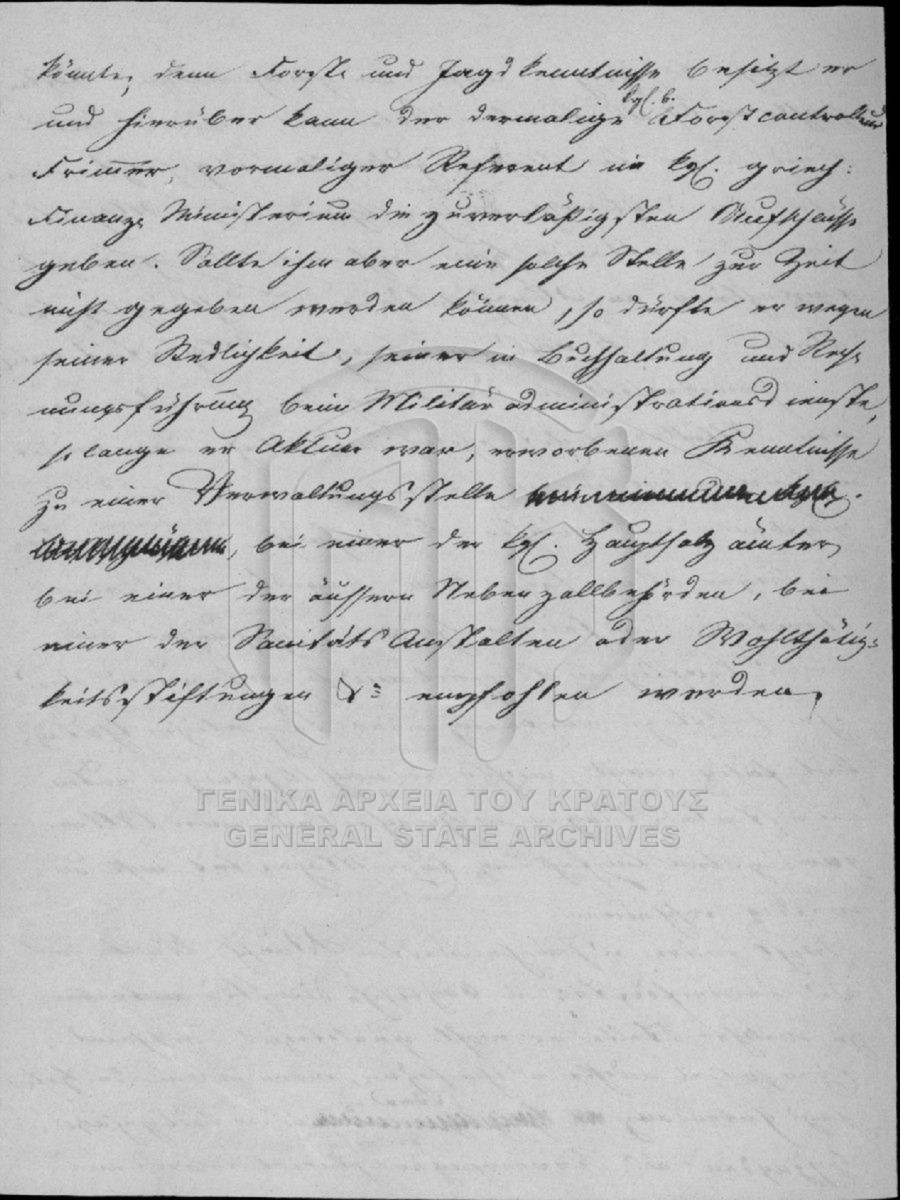 könnte, denn Forst- und Jagdkenntnisse besitzt er
und hierüber kann der dermalige kgl. b. Forstcontrolleur
Frimmer, vormaliger Referent im kgl. griech:
Finanz-Ministerium die zuverläßigsten Aufschlüsse
geben. Sollte ihm aber eine solche Stelle zur Zeit
nicht gegeben werden können, so dürfte er wegen
seiner Redlichkeit, seiner in Buchhaltung und Rech-
nungsführung beim Militäradministrationsdienste,
so lange er Aktuar war, erworbenen Kenntnisse
zu einer Verwaltungsstelle
, bei einer der kgl. Hauptsalzämter,
bei einer der äussern Nebenzollbehörden, bei
einer der Sanitäts Anstalten oder Wohlthätig-
keitsstiftungen &= empfohlen werden.
ΓΕΝΙΚΑ ΑΡΧΕΙΑ ΤΟΥ ΚΡΑΤΟΥΣ
GENERAL STATE ARCHIVES